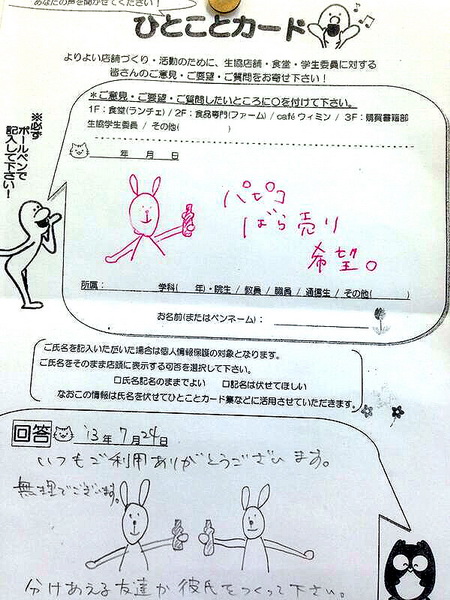 あなたの声を聞かせてください！
ひとことカード
よりよい店舗づくり・活動のために、生協店舗・食堂・学生委員に対する
皆さんのご意見・ご要望・ご質問をお寄せ下さい！
*ご意見・ご要望・ご質問したいところに○を付けて下さい。
1F：食堂(ランチェ) / 2F：食品専門(ファーム) / café ウィミン / 3F：購買書籍部
生協学生委員 / その他( )
※必ず
ボールペンで
記入して下さい！
年 月 日
パピコ
ばら売り
希望。
所属： 学科( 年)・院生 / 教員 / 職員 / 通信生 / その他( )
お名前(またはペンネーム)：
ご氏名を記入いただいた場合は個人情報保護の対象となります。
ご氏名をそのまま店頭に表示する可否を選択して下さい。
□氏名記名のままでよい □記名は伏せてほしい
なおこの情報は氏名を伏せてひとことカード集などに活用させていただきます。
回答 '13年7月24日
いつもご利用ありがとうございます。
無理でございます。
分けあえる友達か彼氏をつくって下さい。